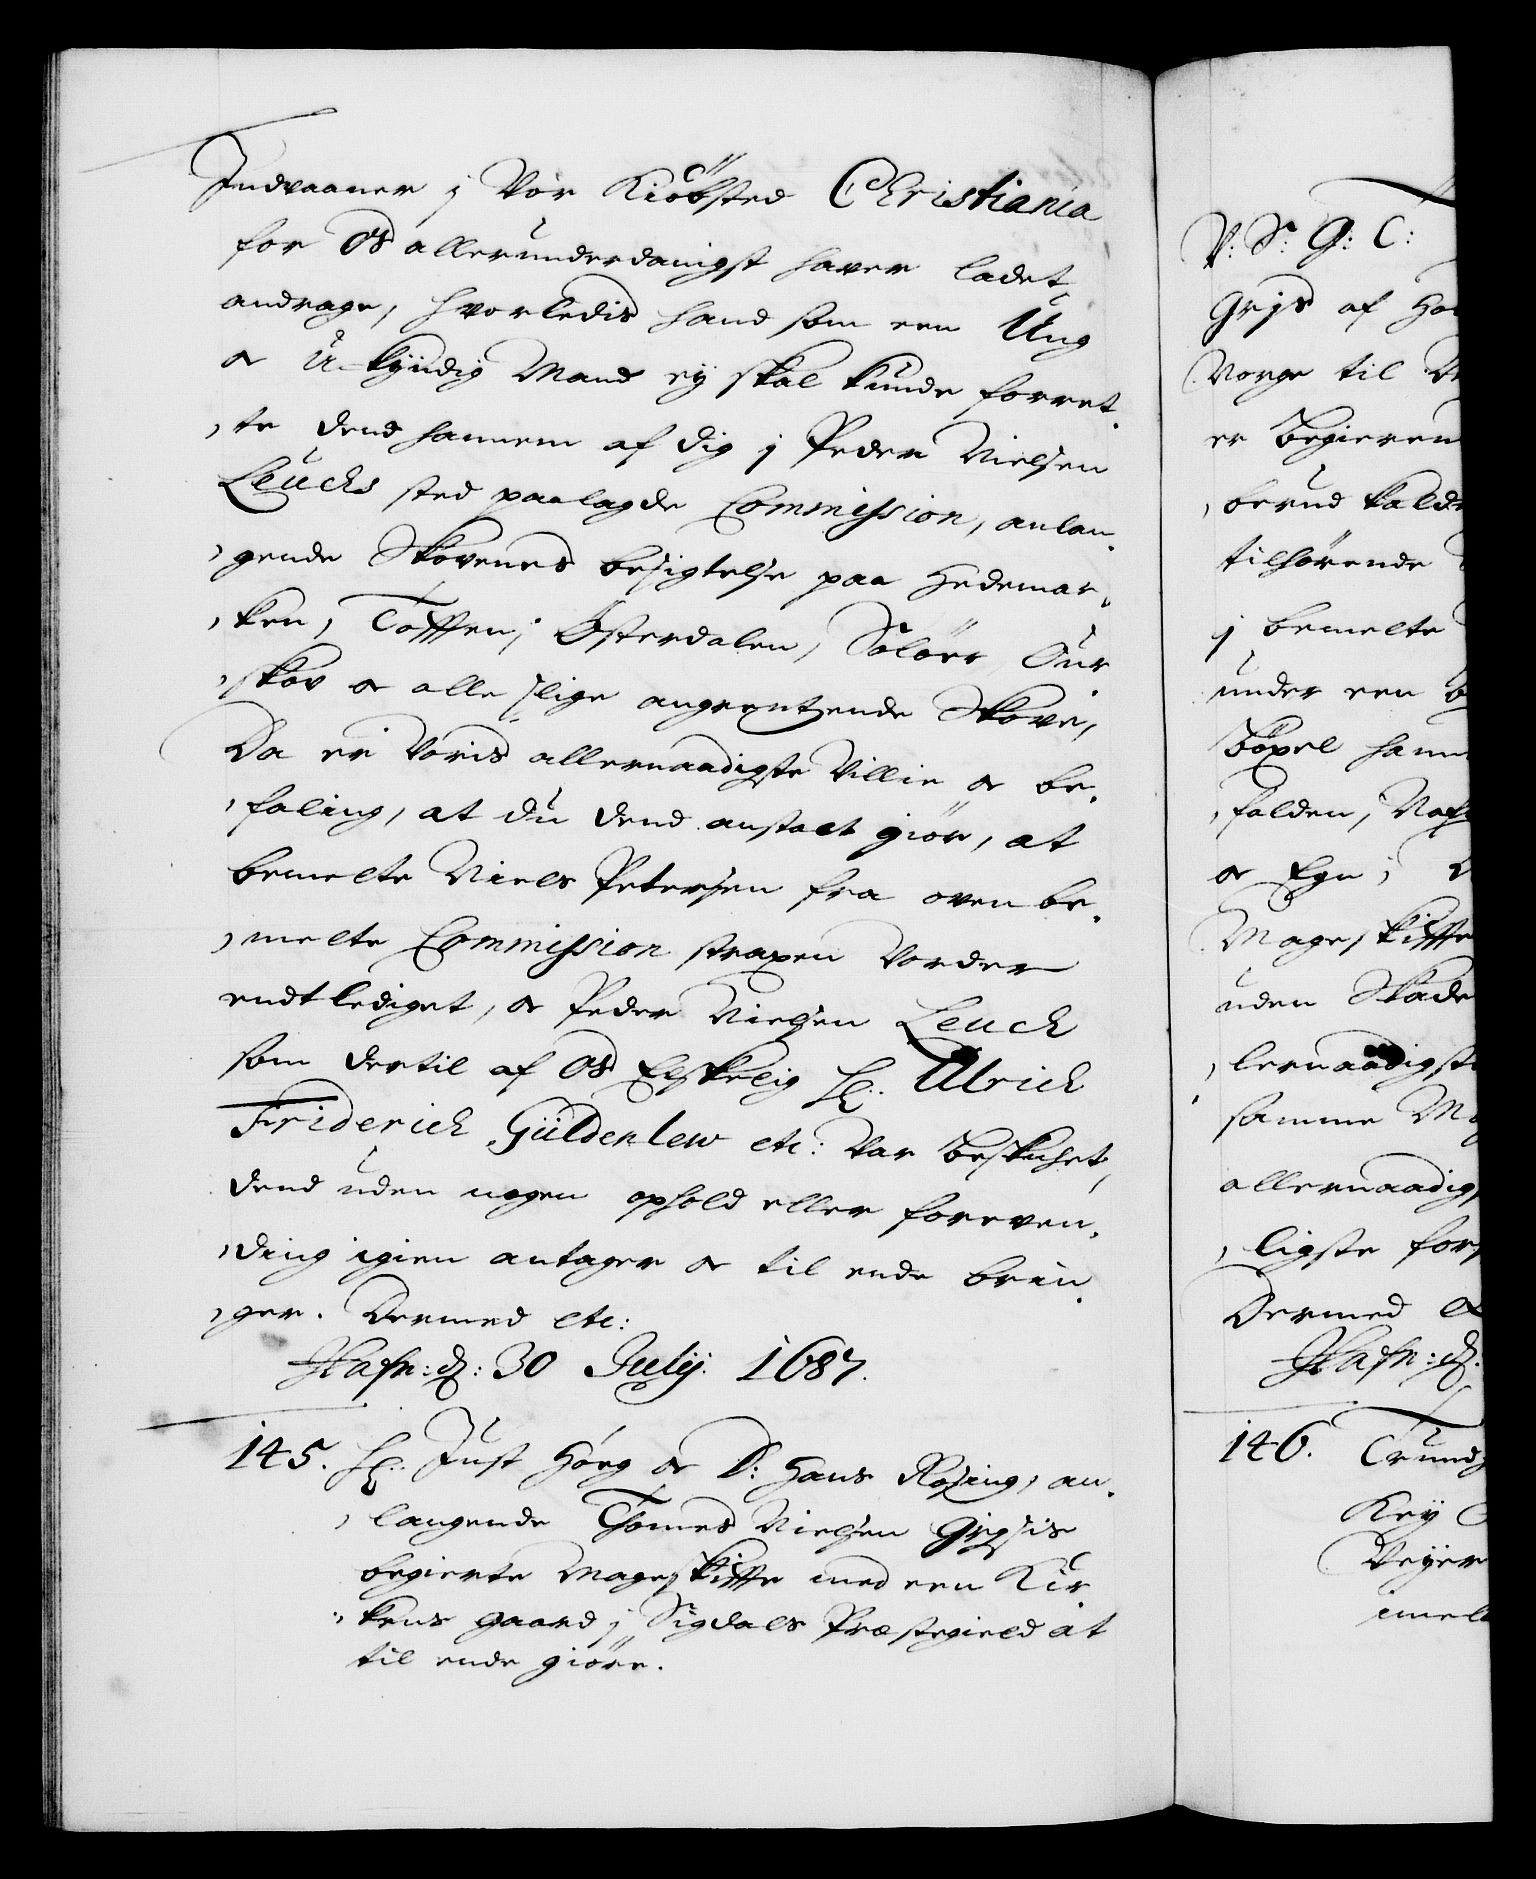 Indvaaner j Vor Kiöbsted Christiania
for Os allerunderdanigst haver ladet
andrage, hvorledis hand som een Ung
og u-kyndig Mand ey skal kunde forret,
,te dend hannem af dig j Peder Nielsen
Leuchs sted paalagde Commission, anlan,
,gende Skovenes besigtelse paa Hedemar,
,ken, Totten, Österdalen, Solöer, Our
,skov og alle slige angrentzende Skove,
Da er Voris allernaadigste Villie og be,
,faling, at du dend anstalt giör, at
bemelte Niels Petersen fra oven be,
,melte Commission straxen vorder
endtlediget, og Peder Nielsen Leuch
som dertil af Os Elskelig H: Ulrich
Friderich Güldenlew etc: var beskichet,
dend uden nogen ophold eller foreven,
,ding igien antager og til ende brin,
,ger. Dermed etc:
Hafn: d: 30 July. 1687.
145. H: Just Höeg og D: Hans Rosing, an,
,langende Thomes Nielsen Grysis
begierte Mageskiffte med een Kir
,kens gaard j Sigdals Præstegield at
til ende giöre.
V: S: G: C:
Grys af
Norge til
er begieren
,berud kald
tilhörende
j bemelte
under een
Böxel hann
,falden,
og Egn,
Mageskiffte
uden Skade
,lernaadigst
samme
allernaadig
,ligste for
Dermed
Hafn: d:
146.